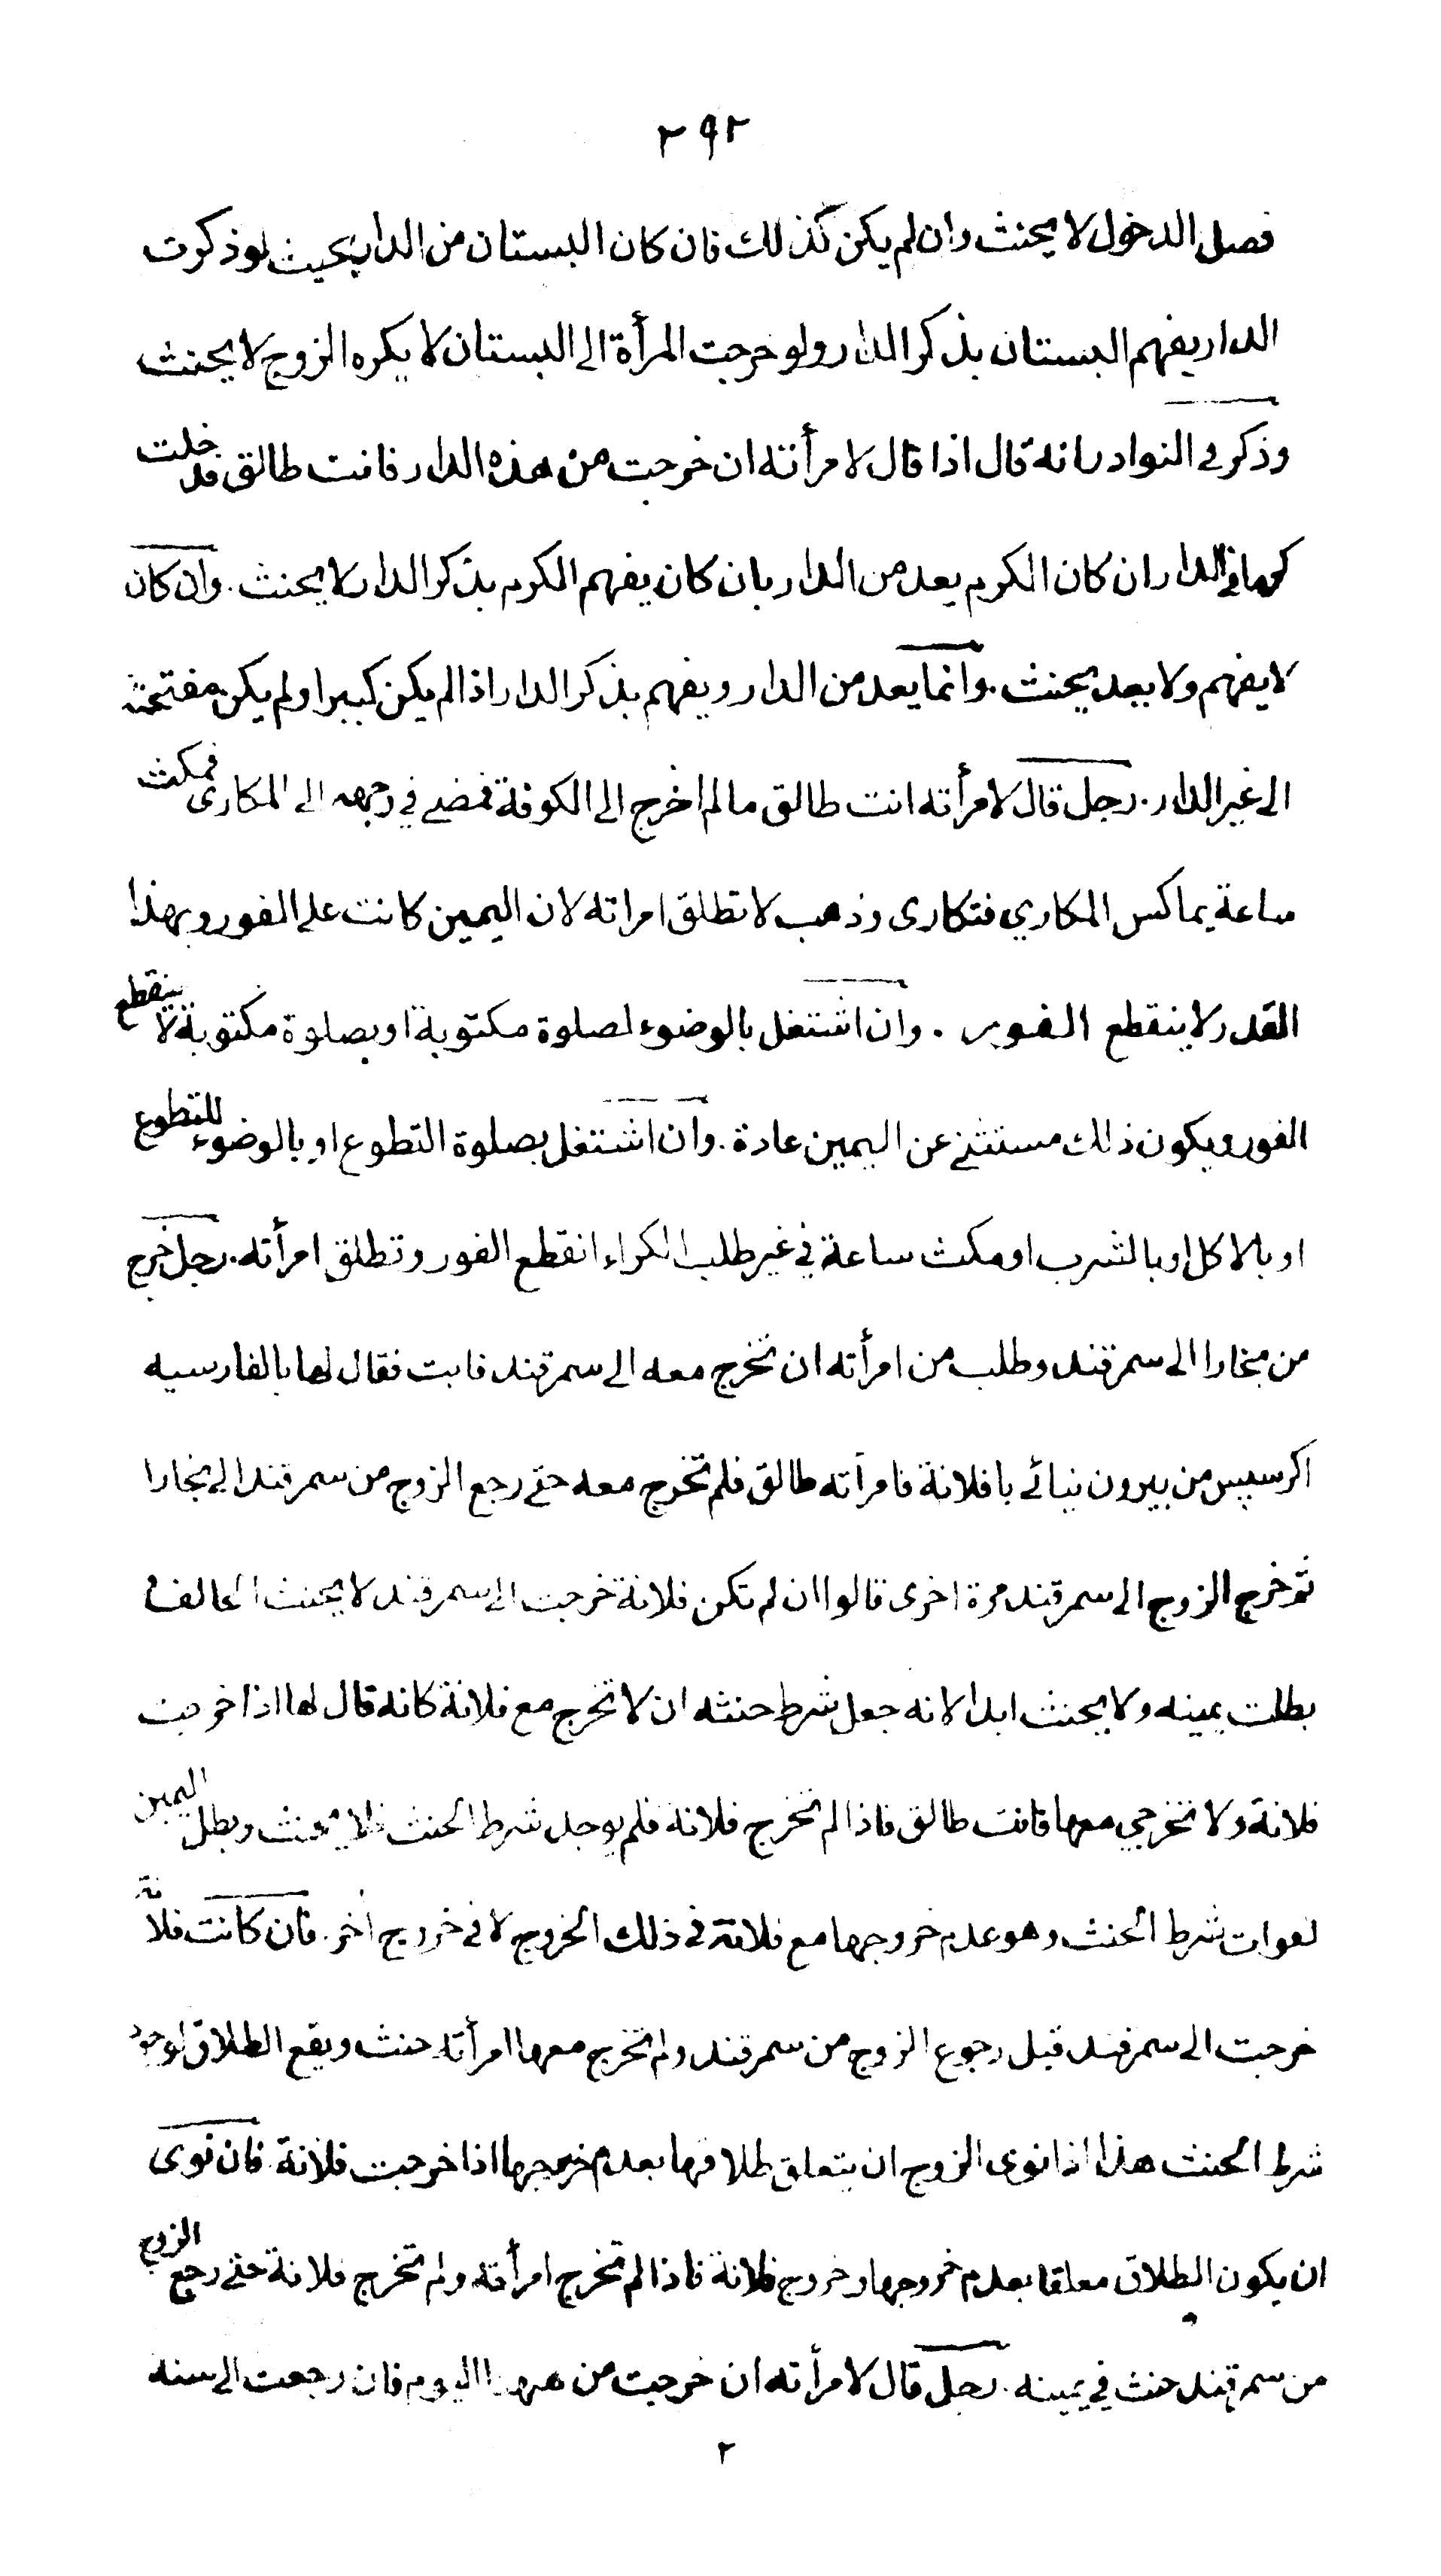 ٢٩٢
فصل الدخول لا يحنث وان لم يكن كذلك فان كان البستان من الدار بحيث لو ذكرت
الدار يفهم البستان بذكر الدار ولو خرجت المرأة الى البستان لا يكره الزوج لا يحنث
وذكر في النوادر انه قال اذا قال لامرأته ان خرجت من هذه الدار فانت طالق فدخلت
كرما في الدار ان كان الكرم يعد من الدار بان كان يفهم الكرم بذكر الدار لا يحنث . وان كان
لا يفهم ولا يعد يحنث . وانما يعد من الدار ويفهم بذكر الدار اذا لم يكن كبيرا ولم يكن مفتحة
الى غير الدار . رجل قال لامرأته انت طالق ما لم اخرج الى الكوفة فمضى في وجهه الى المكارى فمكث
ساعة يماكس المكاري فتكارى وذهب لا تطلق امراته لان اليمين كانت على الفور وبهذا
القدر لا ينقطع الفور . وان اشتغل بالوضوء لصلوة مكتوبة او بصلوة مكتوبة لا ينقطع
الفور ويكون ذلك مستثنى عن اليمين عادة . وان اشتغل بصلوة التطوع او بالوضوء للتطوع
او بالاكل او بالشرب او مكث ساعة في غير طلب الكراء انقطع الفور وتطلق امرأته . رجل خرج
من بخارا الى سمرقند وطلب من امرأته ان تخرج معه الى سمرقند فابت فقال لها بالفارسيه
اكر سپس من بيرون نيائى با فلانة فامرأته طالق فلم تخرج معه حتى رجع الزوج من سمرقند الى بخارا
ثم خرج الزوج الى سمرقند مرة اخرى قالوا ان لم تكن فلانة خرجت الى سمرقند لا يحنث الحالف و
بطلت يمينه ولا يحنث ابدا لانه جعل شرط حنثه ان لا تخرج مع فلانة كانه قال لها اذا خرجت
فلانة ولا تخرجي معها فانت طالق فاذا لم تخرج فلانة فلم يوجد شرط الحنث فلا يحنث وبطل اليمين
لفوات شرط الحنث وهو عدم خروجها مع فلانة في ذلك الخروج لا في خروج اخر . فان كانت فلانة
خرجت الى سمرقند قبل رجوع الزوج من سمرقند ولم تخرج معها امرأته حنث ويقع الطلاق لوجود
شرط الحنث هذا اذا نوى الزوج ان يتعلق طلاقها بعدم خروجها اذا خرجت فلانة . فان نوى
ان يكون الطلاق معلقا بعدم خروجها وخروج فلانة فاذا لم تخرج امرأته ولم تخرج فلانة حتى رجع الزوج
من سمرقند حنث في يمينه . رجل قال لامرأته ان خرجت من ههنا اليوم فان رجعت الى سنه
٢